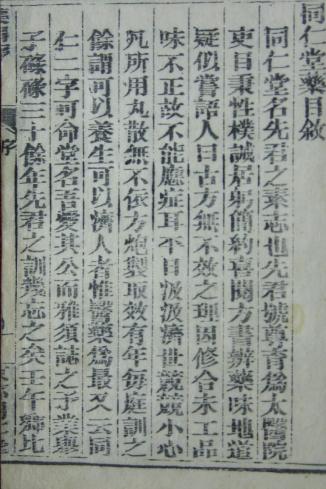 同仁堂藥目敘
同仁堂名先君之素志也先君號尊育爲太醫院
吏目秉性樸誠居躬簡約喜閱方書辨藥味地道
疑似嘗語人曰古方無不效之理因修合未工品
味不正故不能應症耳平日汲汲濟世兢兢小心
凡所用丸散無不依方炮製取效有年每庭訓之
餘謂可以養生可以濟人者惟醫藥爲最又云同
仁二字可命堂名吾愛其公而雅須誌之予業舉
子碌碌三十餘年先君之訓幾忘之矣壬午歸比
序